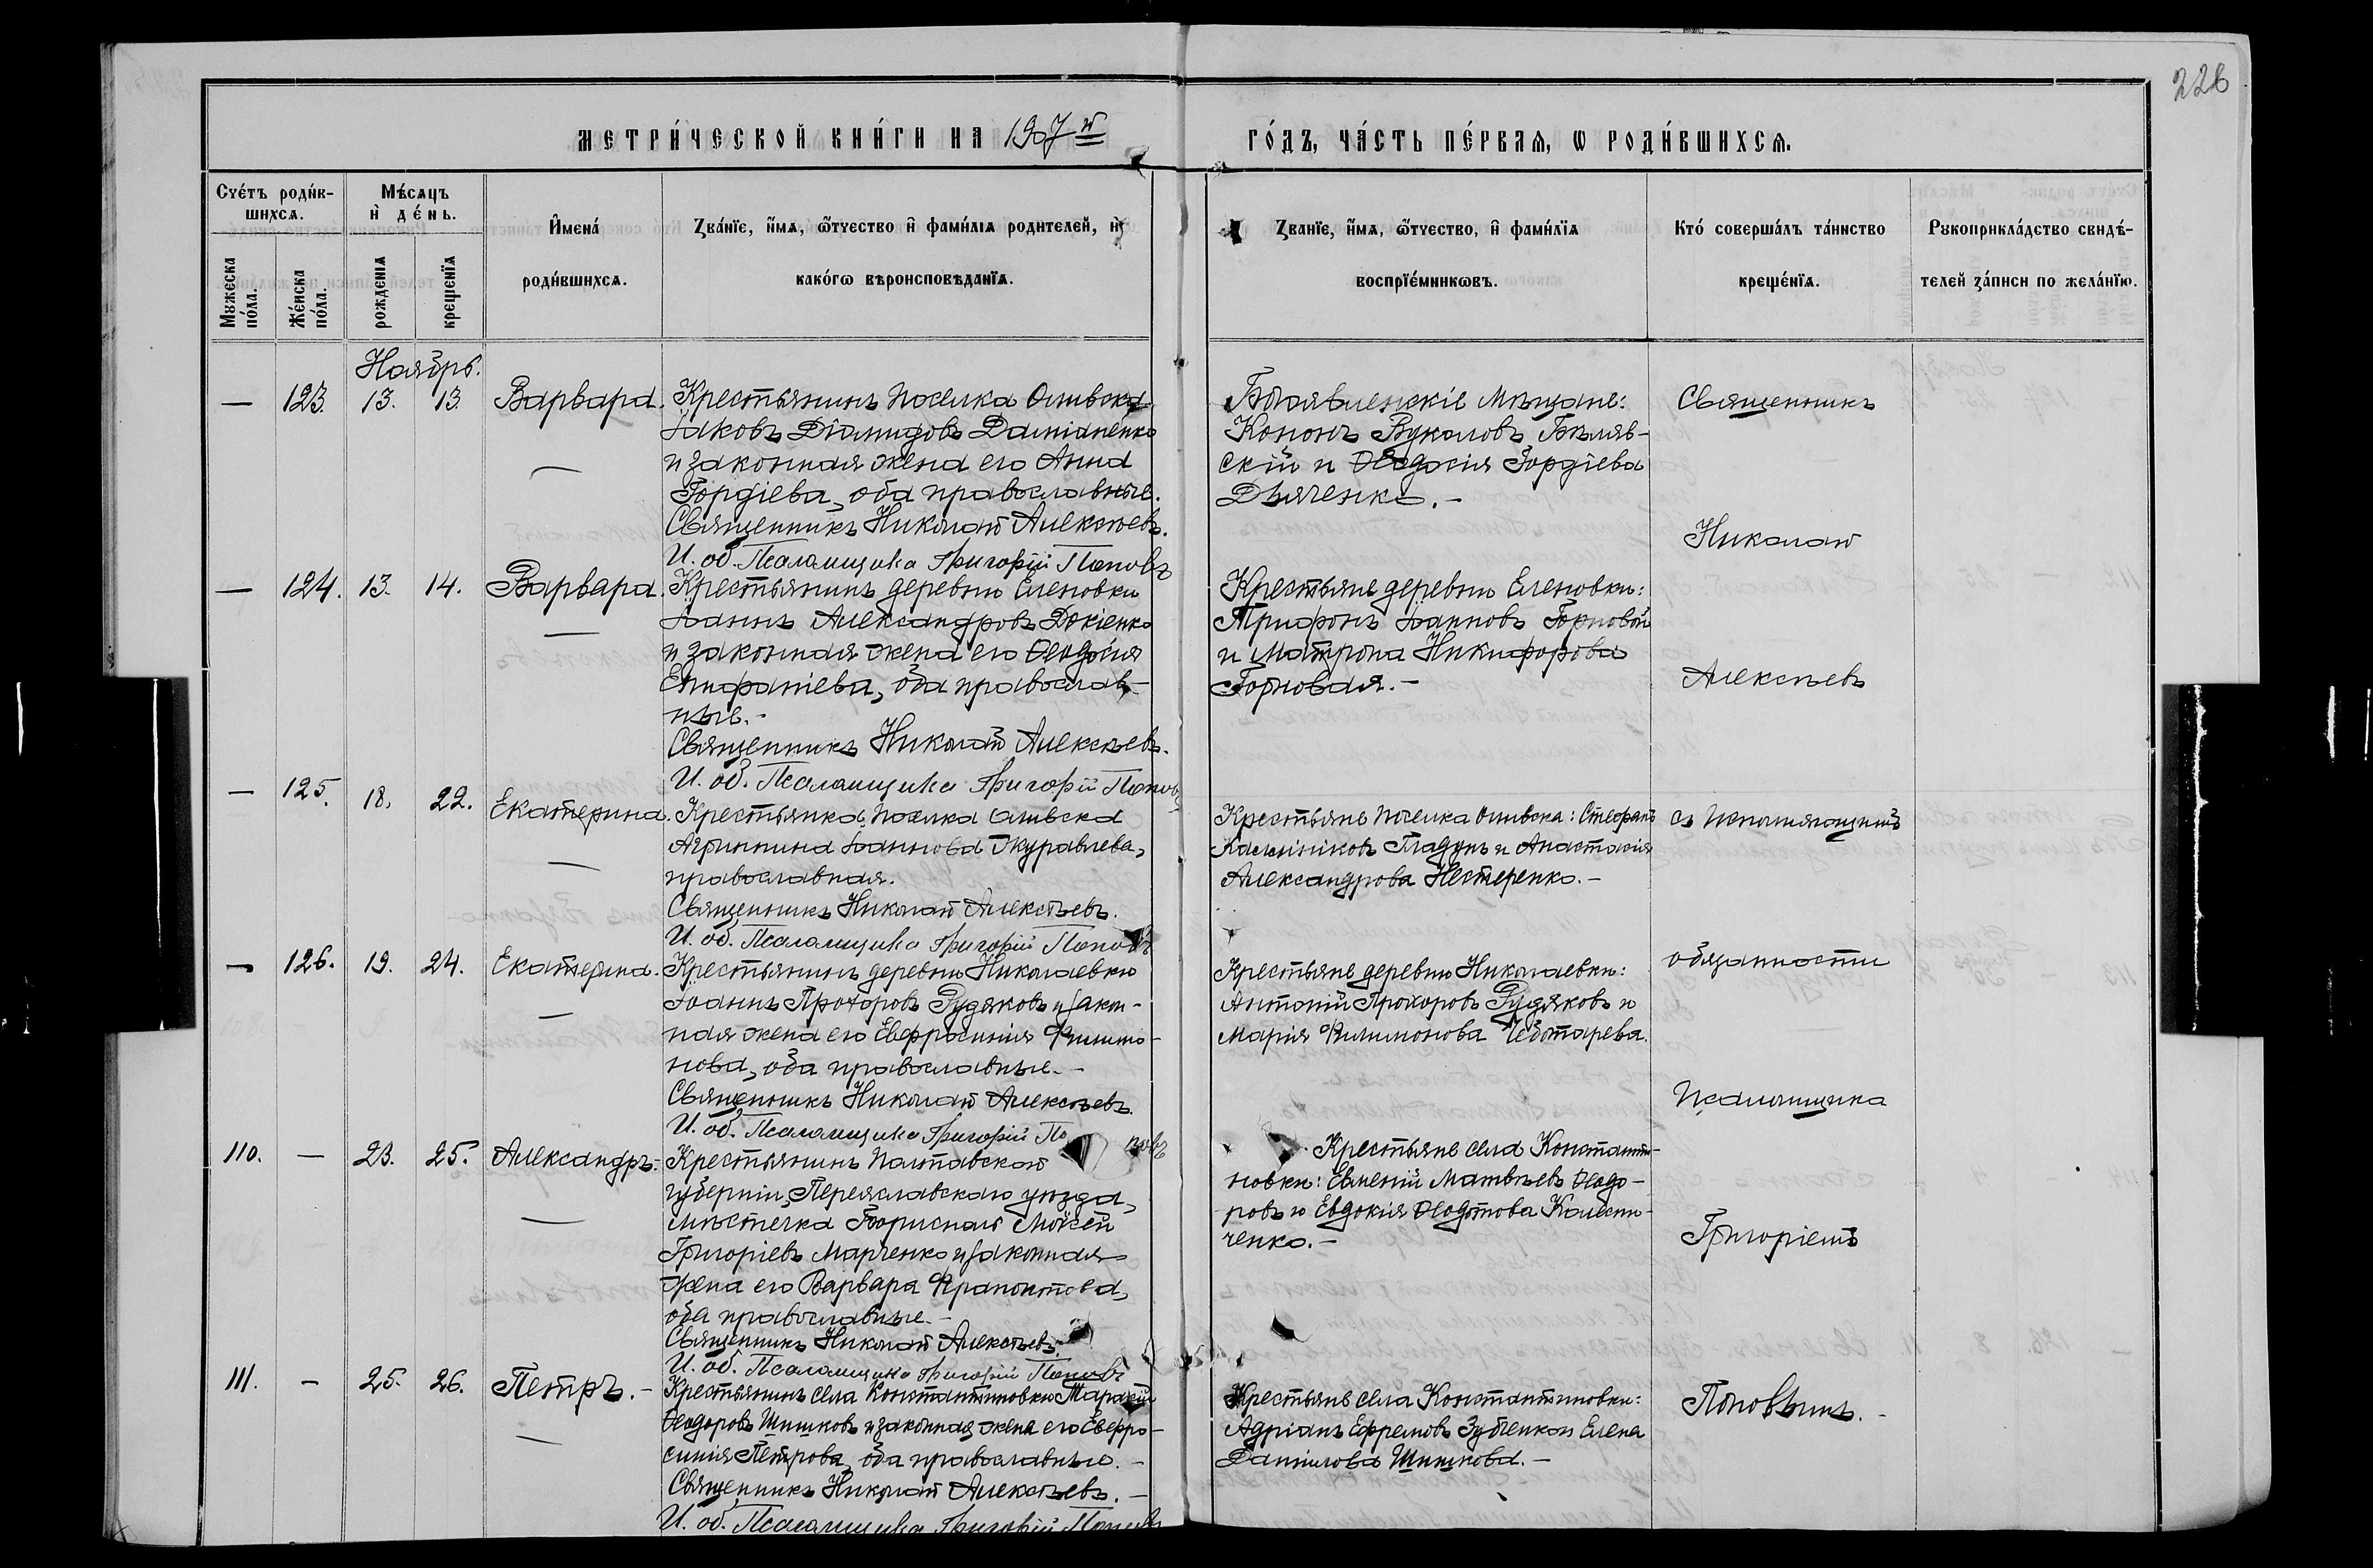 226
МЕТРИ́ЧЕСКОЙ КНИ́ГИ НА 1907 й
ГО́ДЪ, ЧА́СТЬ ПЕ́РВАЯ, Ѡ РОДИ́ВШИХСЯ.
Счéтъ роди́в-
шихся.
Мѣ́сяцъ
и де́нь.
Му́жеска
по́ла.
Же́нска
по́ла.
рожденія
крещенїя
Имена́
роди́вшихся.
Зва́нїе, и́мя, ѻ́тчество и фами́лія родителей, и
како́гѡ вѣроисповѣданїя.
Званїе, и́мя, ѻ́тчество, и фами́лїя
воспрїе́мникѡвъ.
Кто́ соверша́лъ та́инство
креще́нїя.
Рукоприкла́дство свидѣ́-
телей за́писи по жела́нїю.
Ноябрь.
— 123. 13. 13. Варвара.
Крестьянинъ поселка
Іаковъ Діомидовъ Даміаненко
и законная жена его Анна
Гордіева, оба православные.
Священникъ Николай Алексѣевъ.
И. об. Псаломщика Григорій Поповъ
Богоявленскіе мѣщане:
Кононъ Вуколовъ Бѣляв-
скій и Ѳеодосія Гордіева
Дьяченко.-
— 124. 13. 14. Варвара.
Крестьянинъ деревни Еленовки
Іоаннъ Александровъ Докіенко
и законная жена его Ѳеодосія
Епифаніева, оба православ-
ные.-
Священникъ Николай Алексѣевъ.
И. об. Псаломщика Григорій Поповъ
Крестьяне деревни Еленовки:
Трифонъ Іоанновъ Горновой
и Матрона Никифорова
Горновая.-
— 125. 18. 22. Екатерина.
Крестьянка поселка
Агриппина Іоаннова Журавлева,
православная.
Священникъ Николай Алексѣевъ.
И. об. Псаломщика Григорій Поповъ
Крестьяне поселка : Стефанъ
Гладунъ и Анастасія
Александрова Нестеренко.-
— 126. 19. 24. Екатерина.
Крестьянинъ деревни Николаевки
Іоаннъ Прохоровъ Рудяковъ и закон-
ная жена его Евфросинія Филимо-
нова, оба православные.-
Священникъ Николай Алексѣевъ.
И. об. Псаломщика Григорій Поповъ
Крестьяне деревни Николаевки:
Антоній Прохоровъ Рудяковъ и
Марія Филимонова Чеботарева.
110. — 23. 25. Александръ.
Крестьянинъ Полтавской
губерніи, Переяславскаго уѣзда,
мѣстечка Борисполя Моѵсей
Григоріевъ Марченко и законная
жена его Варвара Ферапонтова,
оба православные.-
Священникъ Николай Алексѣевъ.
И. об. Псаломщика Григорій Поповъ
Крестьяне села Константи-
новки: Евгеній Матвѣевъ Ѳеодо-
ровъ и Евдокія Ѳеодотова Колесни-
ченко.-
111. — 25. 26. Петръ.-
Крестьянинъ села Константиновки Тарасій
Ѳеодоровъ Шишковъ и законная жена его Евфро-
синія Петрова, оба православные.-
Священникъ Николай Алексѣевъ.-
И. об. Псаломщика Григорій Поповъ
Крестьяне села Константиновки:
Адріанъ Ефремовъ Зубенко и Елена
Даніилова Шишкова.-
Священникъ
Николай
Алексѣевъ
съ исполняющимъ
обязанности
псаломщика
Григоріемъ
Поповымъ.-